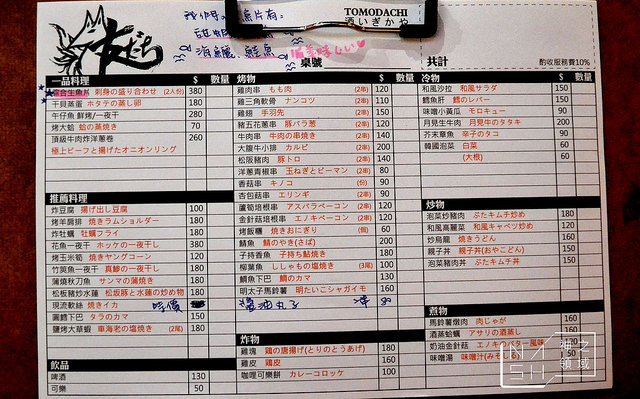 友だち
TOMODACHI
酒いざかや
桌號
共計
酌收服務費10%
一品料理 $ 數量
綜合生魚片 刺身の盛り合わせ (2人份) 380
干貝蒸蛋 ホタテの蒸し卵 180
午仔魚 鮮烤/一夜干 280
烤大蛤 蛤の蒸焼き 70
頂級牛肉炸洋蔥卷 260
極上ビーフと揚げたオニオンリング
推薦料理
炸豆腐 揚げ出し豆腐 100
烤羊肩排 焼きラムショルダー 180
炸牡蠣 牡蠣フライ 180
花魚一夜干 ホッケの一夜干し 380
烤玉米筍 焼きヤングコーン 120
竹筴魚一夜干 真鯵の一夜干し 180
蒲燒秋刀魚 サンマの蒲焼き 180
松板豬炒水蓮 松坂豚と水蓮の炒め物 180
現流軟絲 焼きイカ 時價
圓鱈下巴 タラのカマ 150
鹽烤大草蝦 車海老の塩焼き (2尾) 180
飲品
啤酒 130
可樂 50
烤物 $ 數量
雞肉串 もも肉 (2串) 120
雞三角軟骨 ナンコツ 110
雞翅 手羽先 (2串) 150
豬五花蔥串 豚バラ葱 (2串) 120
牛肉串 牛肉の串焼き (2串) 140
大腹牛小排 カルビ (2串) 200
松阪豬肉 豚トロ (2串) 140
洋蔥青椒串 玉ねぎとピーマン (2串) 80
香菇串 キノコ (份) 90
杏包菇串 エリンギ (2串) 90
蘆筍培根串 アスパラベーコン (2串) 120
金針菇培根串 エノキベーコン (2串) 120
烤飯糰 焼きおにぎり (個) 60
鯖魚 鯖のやき(さば) 200
子持香魚 子持ち鮎焼き 180
柳葉魚 ししゃもの塩焼き (3尾) 100
鯛魚下巴 鯛のカマ 130
明太子馬鈴薯 明たいこシャガイモ 160
炸物
雞塊 鶏の唐揚げ(とりのとうあげ) 180
雞皮 鶏皮 160
咖哩可樂餅 カレーコロッケ 100
冷物 $ 數量
和風沙拉 和風サラダ 150
鱈魚肝 鱈のレバー 150
味噌小黃瓜 モロキュー 90
月見生牛肉 月見牛のタタキ 200
芥末章魚 辛子のタコ 90
韓國泡菜 白菜 60
(大根) 60
炒物
泡菜炒豬肉 ぶたキムチ炒め 180
和風高麗菜 和風キャベツ炒め 120
炒烏龍 焼きうどん 160
親子丼 親子丼(おやこどん) 150
泡菜豬肉丼 ぶたキムチ丼 150
煮物
馬鈴薯燉肉 肉じゃが 160
酒蒸蛤蠣 アサリの酒蒸し 160
奶油金針菇 エノキバター風味
味噌湯 味噌汁(みそしる) 50
NASH
神之領域